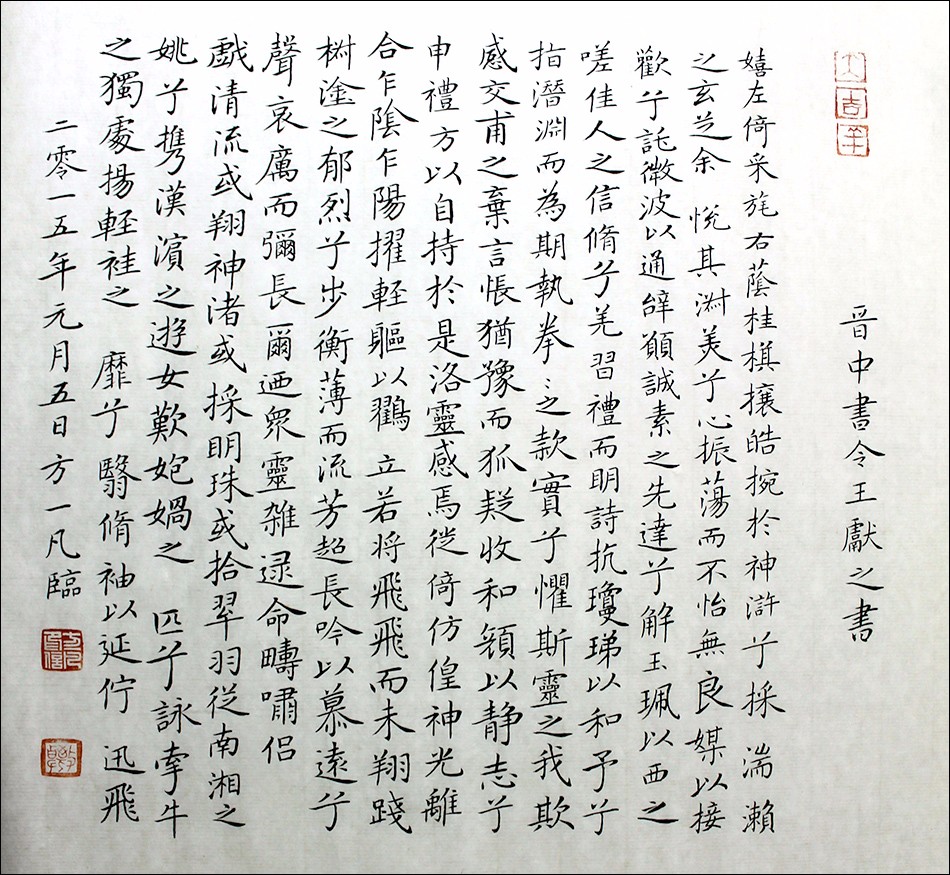 大吉羊
晋中書令王獻之書
嬉左倚采旄右蔭桂棋攘皓捥於神滸兮採 湍瀨
之玄芝余 悅其淑美兮心振蕩而不怡無良媒以接
歡兮託微波以通辭願誠素之先達兮解玉珮以西之
嗟佳人之信脩兮羌習禮而明詩抗瓊珶以和予兮
指潛淵而為期執拳ミ之款實兮懼斯靈之我欺
感交甫之棄言悵猶豫而狐疑收和顏以静志兮
申禮方以自持於是洛靈感焉徙倚仿偟神光離
合乍陰乍陽擢輕軀以鸖 立若將飛飛而未翔踐
椒塗之郁烈兮步衡薄而流芳超長吟以慕遠兮
聲哀厲而彌長爾迺眾靈雜遝命疇嘯侶
戲清流或翔神渚或採明珠或拾翠羽從南湘之
姚兮攜漢濱之遊女歎匏媧之 匹兮詠牽牛
之獨處揚輕袿之 靡兮翳脩袖以延佇 迅飛
二零一五年元月五日方一凡臨